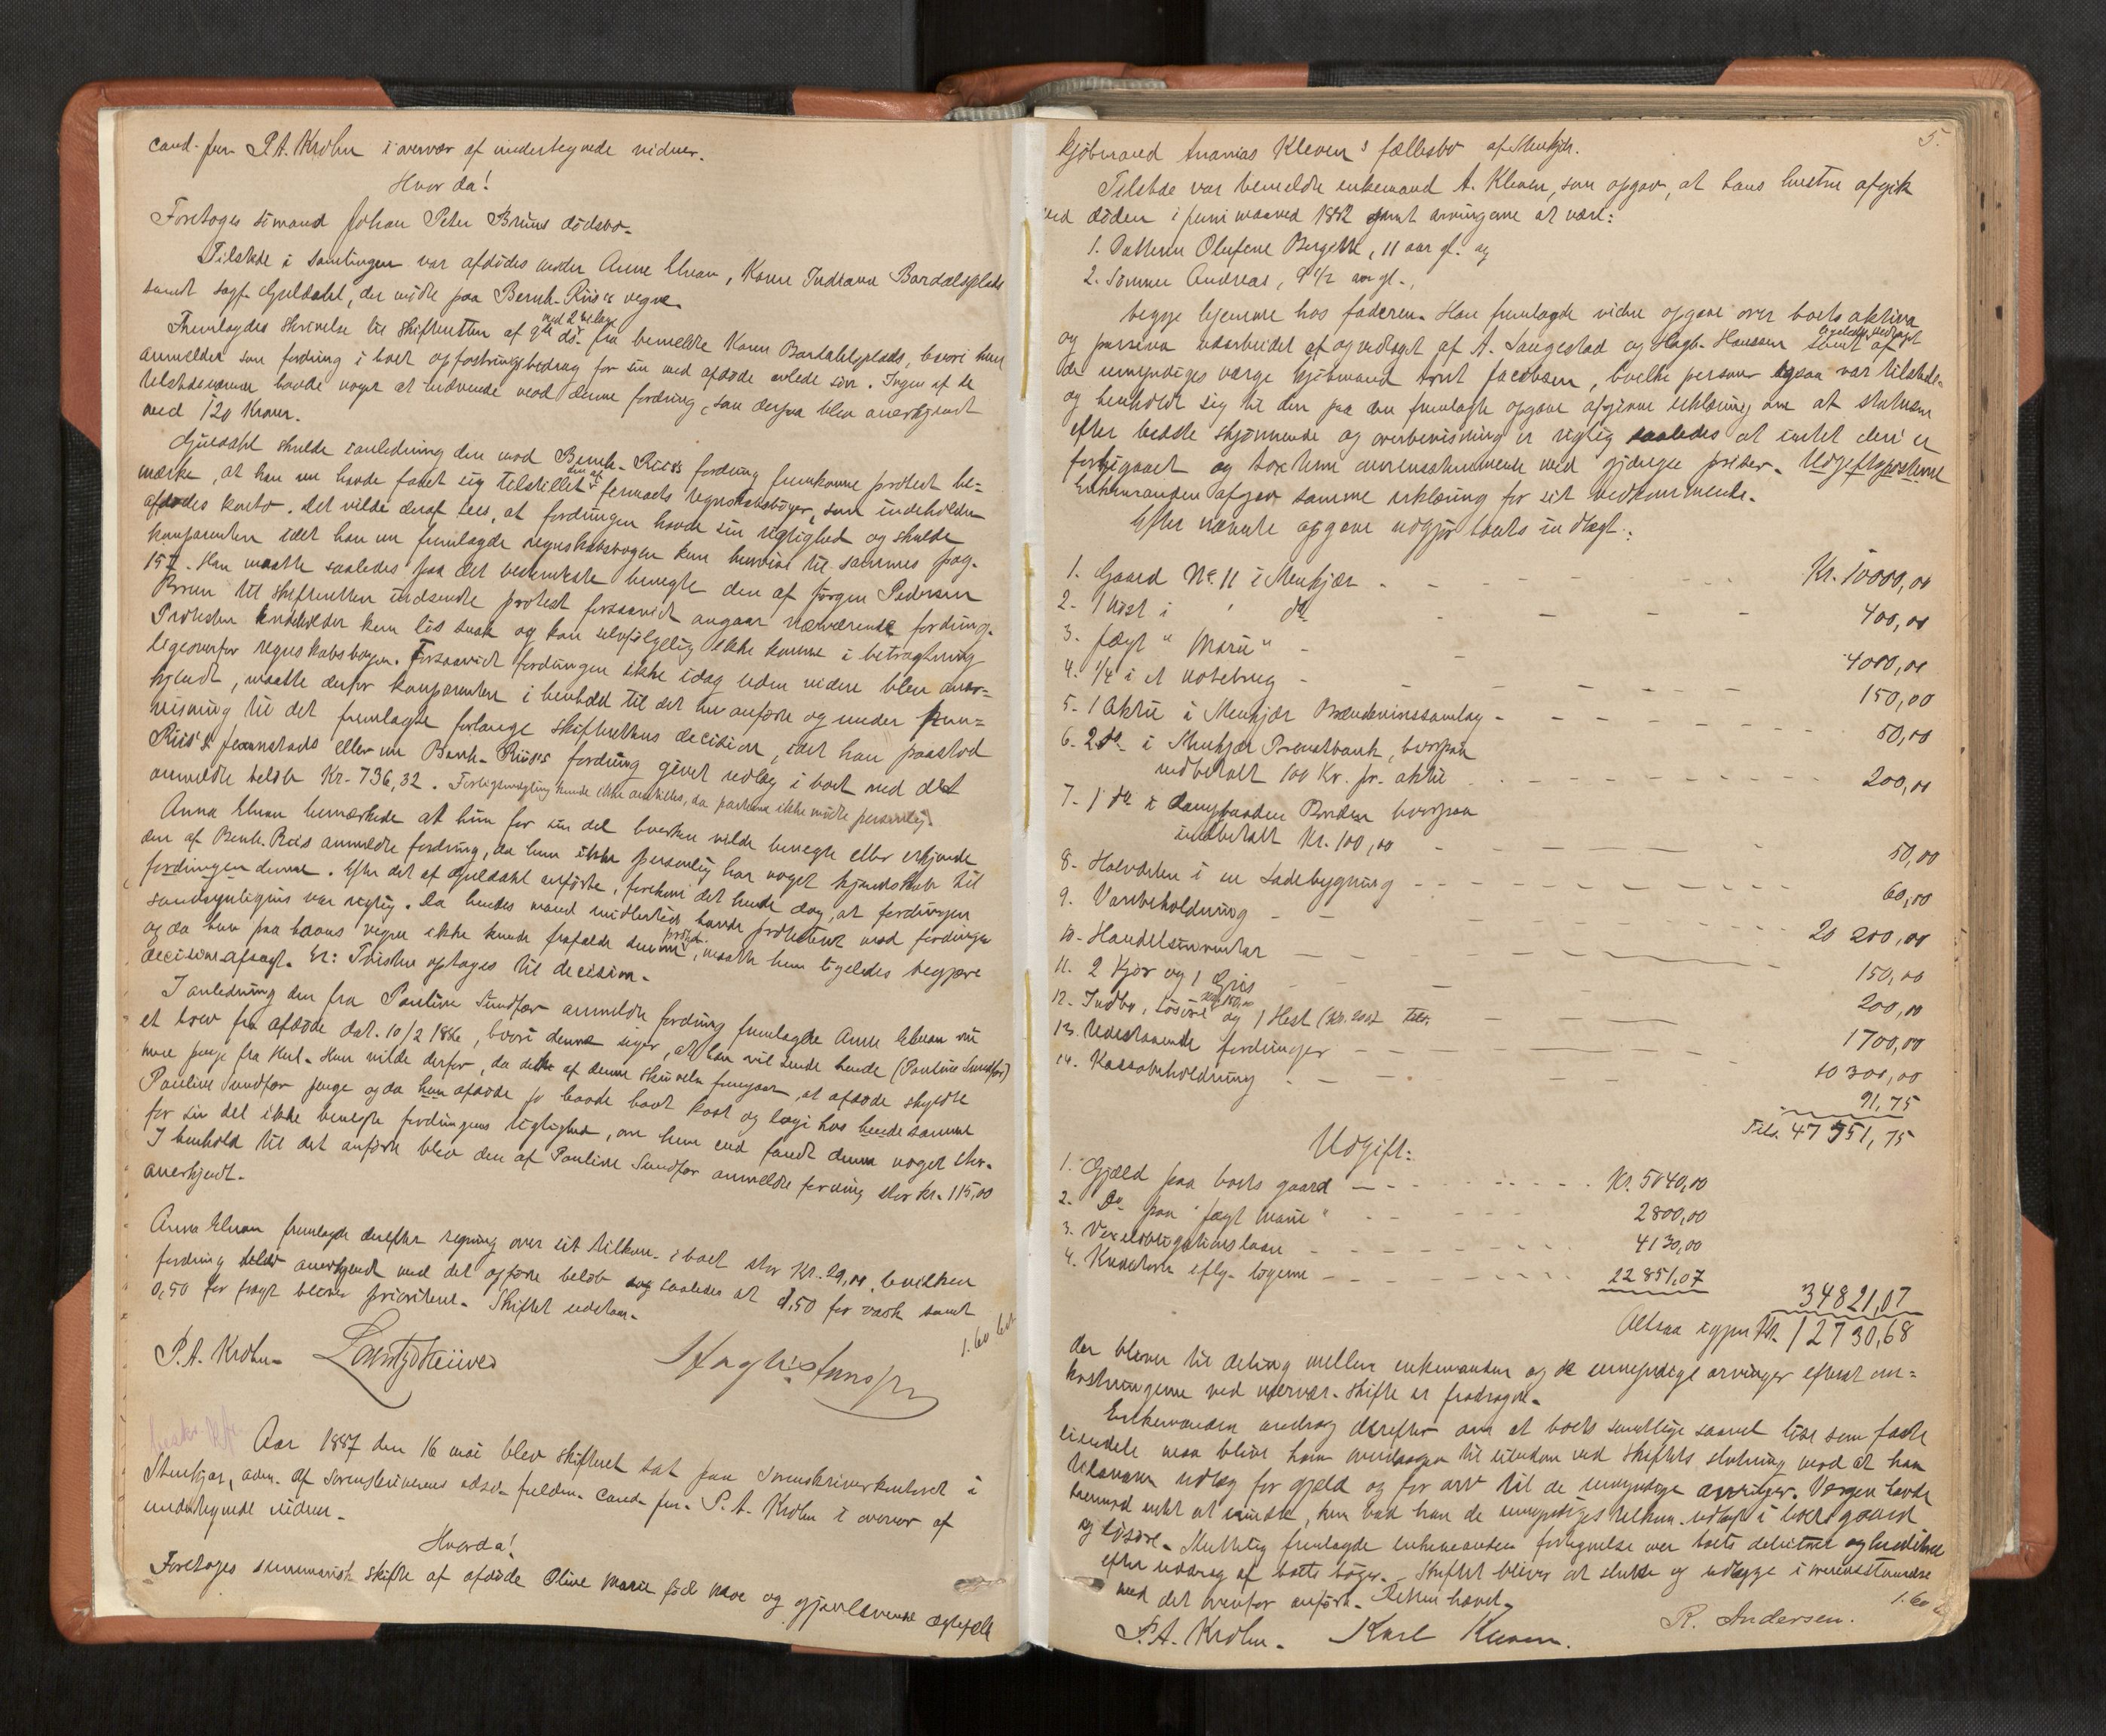 cand. jur. P. A. Krohn i overvær af undertegnede vidner.
Hvor da!
Foretoges sömand Johan Peter Bruns dödsbo.
Tilstede i samlingen var afdödes moder Anne Elnan, Karen Indiana Bardalsplads
samt sagf. Guldahl, der mödte paa Bernh. Riis's vegne.
Fremlagdes skrivelse til skifteretten af 9de ds. med 2 bilag fra bemeldte Karen Bardalsplads, hvori hun
anmelder som fordring i boet opfostringsbidrag for sin med afdöde avlede sön. Ingen af de
tilstedeværende havde noget at indvende mod denne fordring, som derfra blev anerkjendt
med 120 Kroner.
Guldahl skulde i anledning den mod Bernh. Riis's fordring fremkomne protest be=
mærke, at han nu havde faaet sig tilstillet den af regnskabsböger, som indeholder
afdödes konto. Det vilde deraf sees, at fordringen havde sin rigtighed og skulde
komparenten idet han nu fremlagde regnskabsbogen kun henvise til sammes pag.
157. Han maatte saaledes paa det bestemteste benegte den af Jörgen Pedersen
Bruun til skifteretten indsendte protest forsaavidt angaar nærværende fordring.
Protesten indeholder kun lös snak og kan selvfölgelig ikke komme i betragtning
ligeoverfor regnskabsbogen. Forsaavidt fordringen ikke idag uden videre blev aner=
kjendt, maatte derfor komparenten i henhold til det nu anförte og under hen=
visning til det fremlagte forlange skifterettens decision, idet han paastod
Riis's eller nu Bernh. Riis's fordring givet udlæg i boet med det
anmeldte belöb Kr. 736,32. Forligsmægling kunde ikke anstilles, da parterne ikke mödte personlig.
Anna Elnan bemærkede at hun for sin del hverken vilde benegte eller erkjende
den af Bernh. Riis anmeldte fordring, da hun ikke personlig har noget kjendskab til
fordringen denne. Efter det af Guldahl anförte, forekom det hende dog, at fordringen
sandsynligvis var rigtig. Da hendes mand imidlertid havde protesteret mod fordringen
og da hun paa hans vegne ikke kunde frafalde denne protest, maatte hun ligeledes begjære
decision afsagt. Er: Tvisten optages til decision.
I anledning den fra Pauline Sundfør anmeldte fordring fremlagde Anne Elnan nu
et brev fra afdöde dat. 10/2 1886, hvori denne siger, at han vil sende hende (Pauline Sundfør)
mere penge fra Hul. Hun vilde derfor, da dette af denne skrivelse fremgaar, at afdöde skyldte
Pauline Sundfør penge og da hun afdöde jo havde havt kost og logi hos hende samme
for sin del ikke benegte fordringens rigtighed, om hun end fandt denne noget stor.
I henhold til det anförte blev den af Pauline Sundfør anmeldte fordring stor Kr. 115,00
anerkjendt.
Anna Elnan fremlagde derefter regning over sit tilkom. i boet stor Kr. 29,00, hvilken
fordring blev anerkjendt med det opförte belöb og saaledes at 1,50 for vask samt
0,50 for fragt bliver prioriteret. Skiftet udstaar.
1.60 bet.
P. A. Krohn.
Aar 1887 den 16 mai blev skifteret sat paa Sorenskriverkontoret i
Stenkjær, adm. af sorenskriverens edsv. fuldm. cand. jur. P. A. Krohn i overvær af
undertegnede vidner.
Hvorda!
Foretoges summarisk skifte af afdöde Oline Marie föd Moe og gjenlevende ægtefælle
5.
kjöbmand Ananias Kleven's fællesbo af Stenkjær.
Tilstede var bemeldte enkemand A. Kleven, som opgav, at hans hustru afgik
ved döden i juni maaned 1882 samt arvingerne at være:
1. Datteren Olufine Bergette, 11 aar gl. og
2. Sönnen Andreas, 9 1/2 aar gl.,
begge hjemme hos faderen. Han fremlagde vidre opgave over boets aktiva
og passiva udarbeidet af og vedtaget af A. Langestad og Hagb. Hanssen samt ligeledes vedtaget af
de umyndiges værge kjöbmand Arnt Jacobsen, hvilke personer ogsaa var tilstede
og henholdt sig til den paa den fremlagte opgave afgivne erklæring om at statusen
efter bedste skjönnende og overbevisning er rigtig saaledes at intet deri er
forbigaaet og taxterne overensstemmende med gjængse priser. Udgiftsposterne
Enkemanden afgav samme erklæring for sit vedkommende.
Efter nævnte opgave udgjör boets indtægt:
1. Gaard No. 11 i Stenkjær . - - - Kr. 10000,00
2. 1 i do - - - 400,00
3. Jægt "Marie" - - 4000,00
4. 1/4 i et notebrug - - - 150,00
5. 1 Aktie i Stenkjær Brændevinssamlag - - - 50,00
6. 2 do i Stenkjær Privatbank, hvorpaa
indbetalt 100 Kr. pr. aktie . - - - 200,00
7. 1 do i Dampbaaden Barden hvorpaa
indbetalt Kr. 100,00 - - - 50,00
8. Halvdelen i en Ladebygning - - - 60,00
9. Varebeholdning - - - 20 200,00
10. Handelsinventar - - - 150,00
11. 2 Kjör og 1 Gris - - - 200,00
12. Indbo, Lösöre og 1 Hest (Kr. 200) Tils. - - 1700,00
13. Udestaaende fordringer - - - 10 300,00
14. Kassabeholdning - - - 91,75
Tils. 47551,75
Udgift:
1. Gjæld paa boets gaard - - - Kr. 5040,00
2. Do paa "jægt Marie" - - - 2800,00
3. Vexelobligationslaan - - - 4130,00
4. Kreditorer iflg. bögerne - - - 22851,07
34821,07
Altsaa igjen Kr. 12730,68
der bliver til deling mellem enkemanden og de umyndige arvinger efterat om=
kostningerne ved nærvær. skifte er fradragne.
Enkemanden androg derefter om at boets samtlige saavel löse som faste
eiendele maa blive ham overdragen til eiendom ved skiftets slutning mod at han
tilsvarer udlæg for gjæld og for arv til de umyndige arvinger. Værgen havde
herimod intet at erindre, kun bad han de umyndiges tilkom. udlagt i boets gaard
og lösöre. Skriftlig fremlagde enkemanden fortegnelse over boets debitorer og kreditorer
efter uddrag af boets böger. Skiftet bliver at slutte og udlægge i overensstemmelse
med det ovenfor anförte. Retten hævet.
1.60
P. A. Krohn. Karl Kleven. R. Andersen.